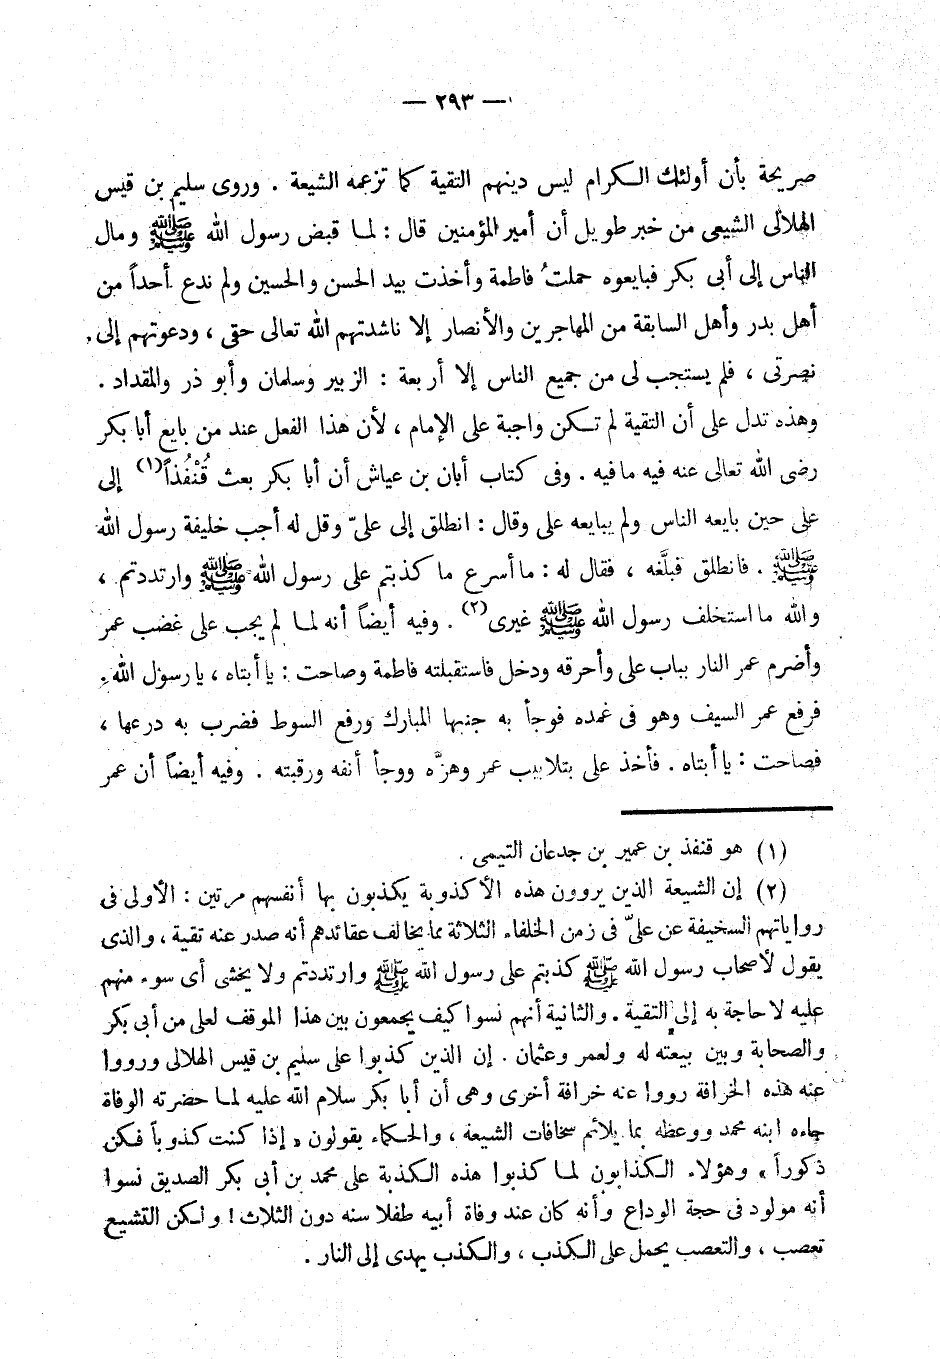 — ٢٩٣ —
صريحة بأن أولئك الكرام ليس دينهم التقية كما تزعمه الشيعة . وروى سليم بن قيس
الهلالى الشيعى من خبر طويل أن أمير المؤمنين قال : لما قبض رسول الله ﷺ ومال
الناس إلى أبى بكر فبايعوه حملتُ فاطمة وأخذت بيد الحسن والحسين ولم ندع أحداً من
أهل بدر وأهل السابقة من المهاجرين والأنصار إلا ناشدتهم الله تعالى حقى ، ودعوتهم إلى
نصرتى ، فلم يستجب لى من جميع الناس إلا أربعة : الزبير وسلمان وأبو ذر والمقداد .
وهذه تدل على أن التقية لم تكن واجبة على الإمام ، لأن هذا الفعل عند من بايع أبا بكر
رضى الله تعالى عنه فيه ما فيه . وفى كتاب أبان بن عياش أن أبا بكر بعث قُنْفُذاً(١) إلى
على حين بايعه الناس ولم يبايعه على وقال : انطلق إلى علىّ وقل له أجب خليفة رسول الله
ﷺ . فانطلق قبلَّغه ، فقال له : ما أسرع ما كذبتم على رسول الله ﷺ وارتددتم ،
والله ما استخلف رسول الله ﷺ غيرى(٢) . وفيه أيضاً أنه لما لم يجب على غضب عمر
وأضرم عمر النار بباب على وأحرقه ودخل فاستقبلته فاطمة وصاحت : يا أبتاه ، يا رسول الله .
فرفع عمر السيف وهو فى غمده فوجأ به جنبها المبارك ورفع السوط فضرب به درعها ،
فصاحت : يا أبتاه . فأخذ على بتلابيب عمر وهزَّه ووجأ أنفه ورقبته . وفيه أيضاً أن عمر
(١) هو قنفذ بن عمير بن جدعان التيمى .
(٢) إن الشيعة الذين يروون هذه الأكذوبة يكذبون بها أنفسهم مرتين : الأولى فى
رواياتهم السخيفة عن علىّ فى زمن الخلفاء الثلاثة مما يخالف عقائدهم أنه صدر عنه تقية ، والذى
يقول لأصحاب رسول الله ﷺ كذبتم على رسول الله ﷺ وارتددتم ولا يخشى أى سوء منهم
عليه لا حاجة به إلى التقية . والثانية أنهم نسوا كيف يجمعون بين هذا الموقف لعلى من أبى بكر
والصحابة وبين بيعته له ولعمر وعثمان . إن الذين كذبوا على سليم بن قيس الهلالى ورووا
عنه هذه الخرافة رووا عنه خرافة أخرى وهى أن أبا بكر سلام الله عليه لما حضرته الوفاة
جاءه ابنه محمد ووعظه بما يلائم سخافات الشيعة ، والحكماء يقولون « إذا كنت كذوباً فكن
ذكوراً » وهؤلاء الكذابون لما كذبوا هذه الكذبة على محمد بن أبى بكر الصديق نسوا
أنه مولود فى حجة الوداع وأنه كان عند وفاة أبيه طفلا سنه دون الثلاث ! ولكن التشيع
تعصب ، والتعصب يحمل على الكذب ، والكذب يهدى إلى النار .